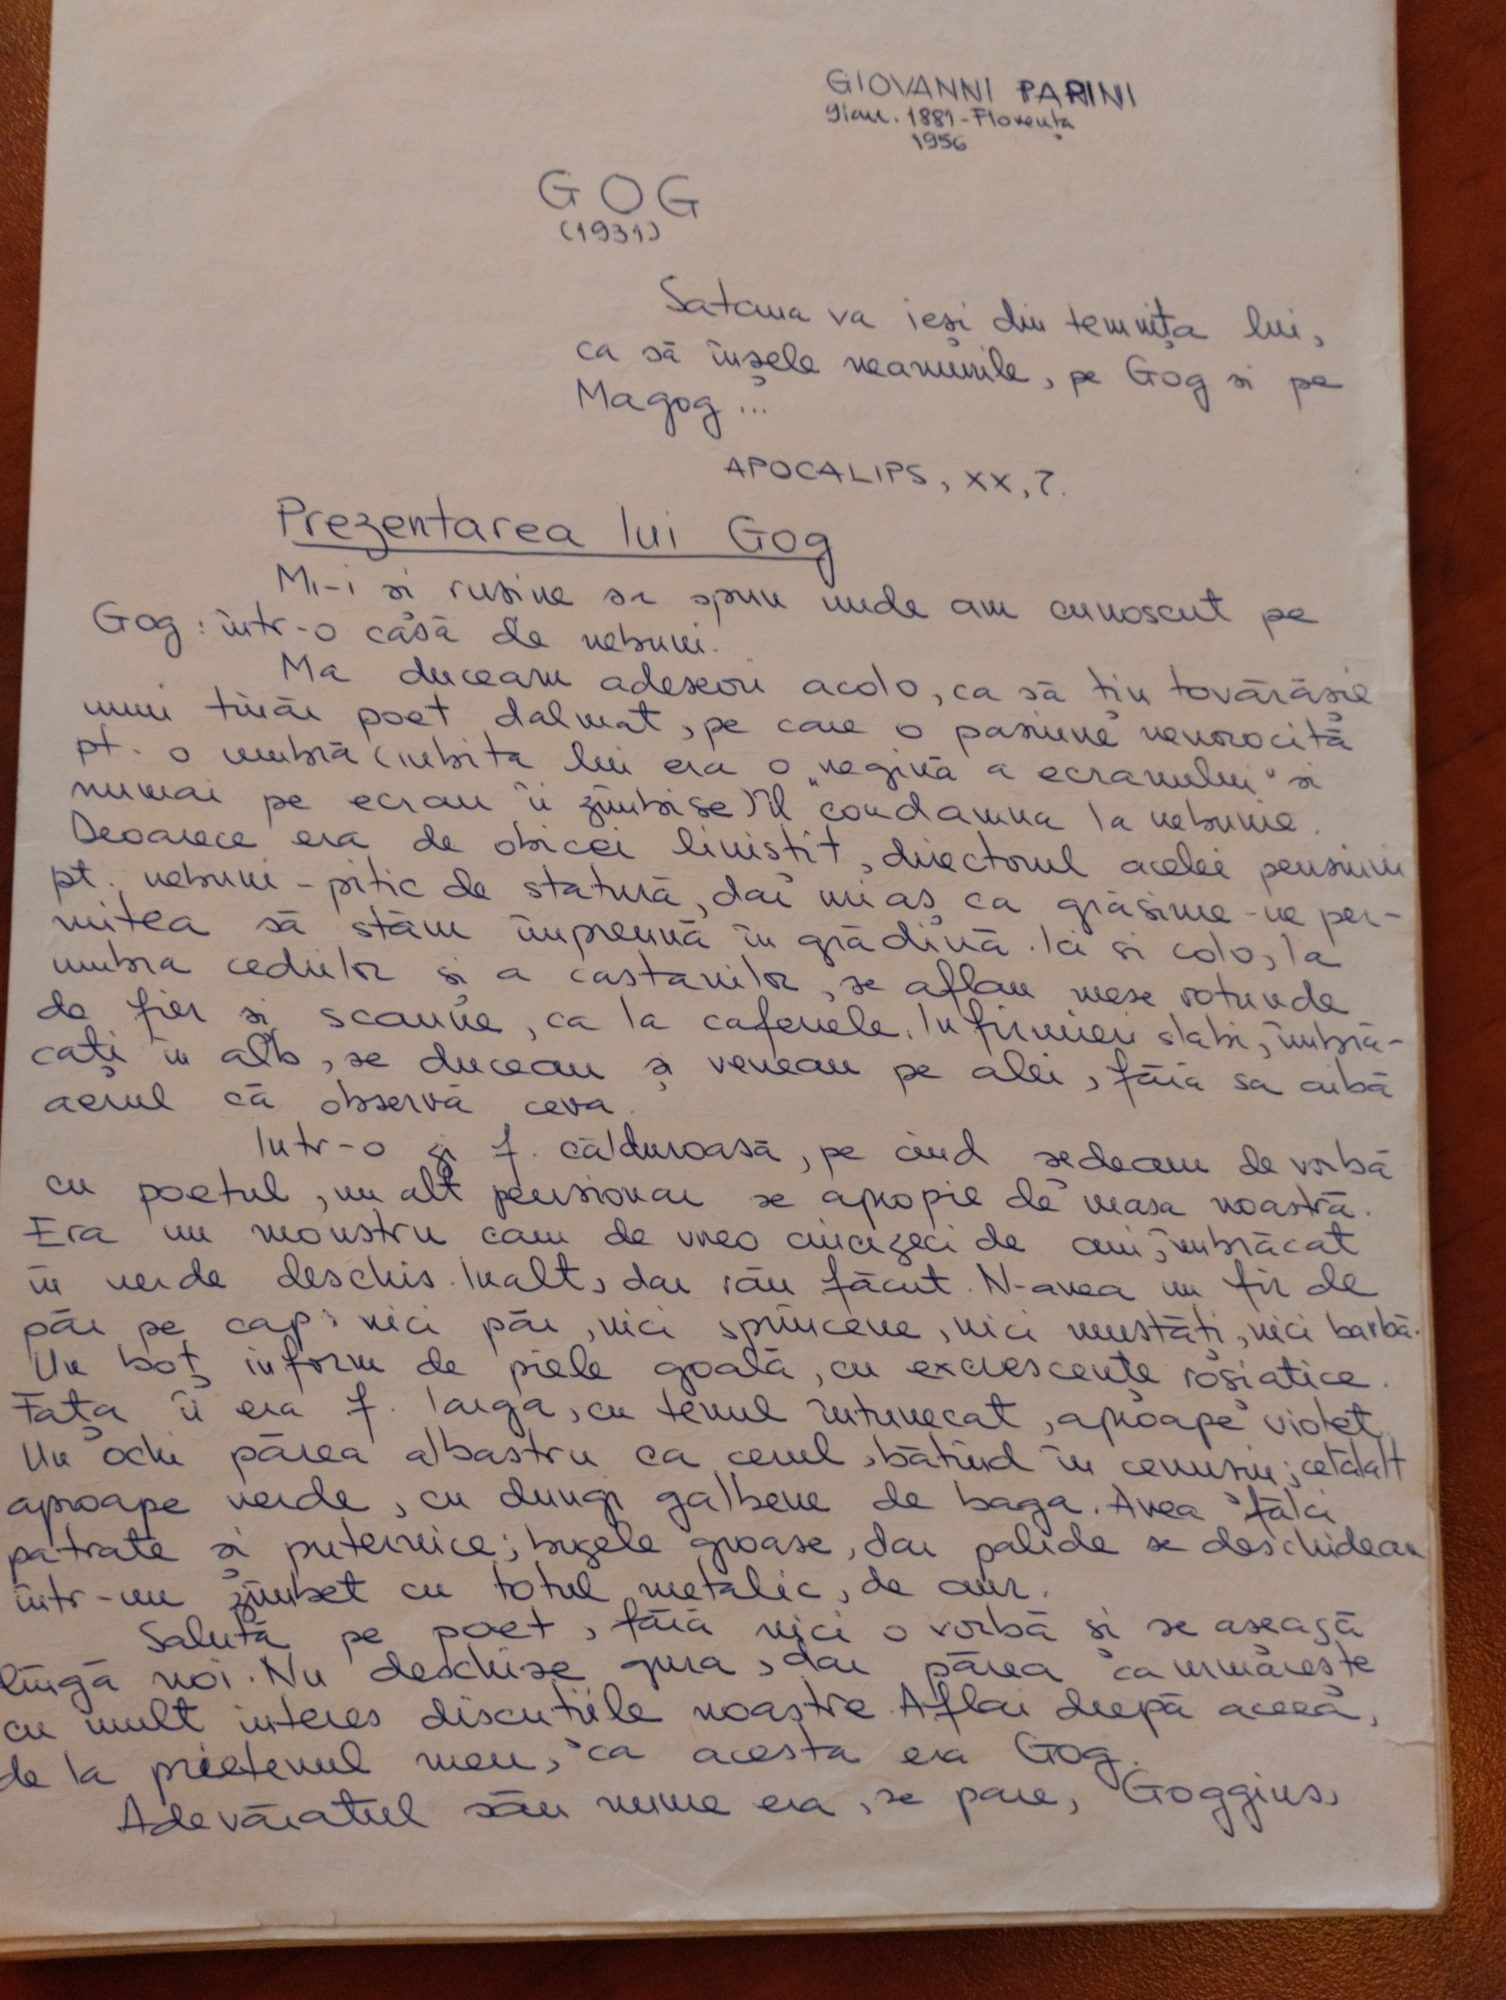 GIOVANNI PAPINI
gian. 1881 - Florența
1956
GOG
(1931)
Satana va ieși din temnița lui,
ca să înșele neamurile, pe Gog si pe
Magog...
APOCALIPS, XX, 7.
Prezentarea lui Gog
Mi-i si rusine sa spun unde am cunoscut pe
Gog: într-o casă de nebuni.
Ma duceam adeseori acolo, ca să țin tovărăsie
unui tînăr poet dalmat, pe care o pasiune nenorocită
pt. o umbră (iubita lui era o "regină a ecranului" si
numai pe ecran îi zîmbise) îl condamna la nebunie.
Deoarece era de obicei linistit, directorul acelei pensiuni
pt. nebuni - pitic de statură, dar urias ca grăsime - ne per-
mitea să stăm împreună în grădină. Ici si colo, la
umbra cedrilor și a castanilor, se aflau mese rotunde
de fier si scaune, ca la cafenele. Infirmieri slabi, îmbră-
cați în alb, se duceau si veneau pe alei, fără sa aibă
aerul că observă ceva.
Intr-o zi f. călduroasă, pe cînd sedeam de vorbă
cu poetul, un alt pensionar se apropie de masa noastră.
Era un monstru cam de vreo cincizeci de ani, îmbrăcat
în verde deschis. Inalt, dar rău făcut. N-avea un fir de
păr pe cap: nici păr, nici sprîncene, nici mustăți, nici barbă.
Un boț inform de piele goală, cu excrescențe roșiatice.
Fața îi era f. larga, cu tenul întunecat, aproape violet.
Un ochi părea albastru ca cerul, bătînd în cenusiu; celălalt
aproape verde, cu dungi galbene de baga. Avea fălci
patrate si puternice; buzele groase, dar palide se deschideau
într-un zîmbet cu totul metalic, de aur.
Salută pe poet, fără nici o vorbă și se asează
lîngă noi. Nu deschise gura, dar părea ca urmărește
cu mult interes discutiile noastre. Aflai după aceea,
de la prietenul meu, ca acesta era Gog.
Adevăratul său nume era, se pare, Goggins,